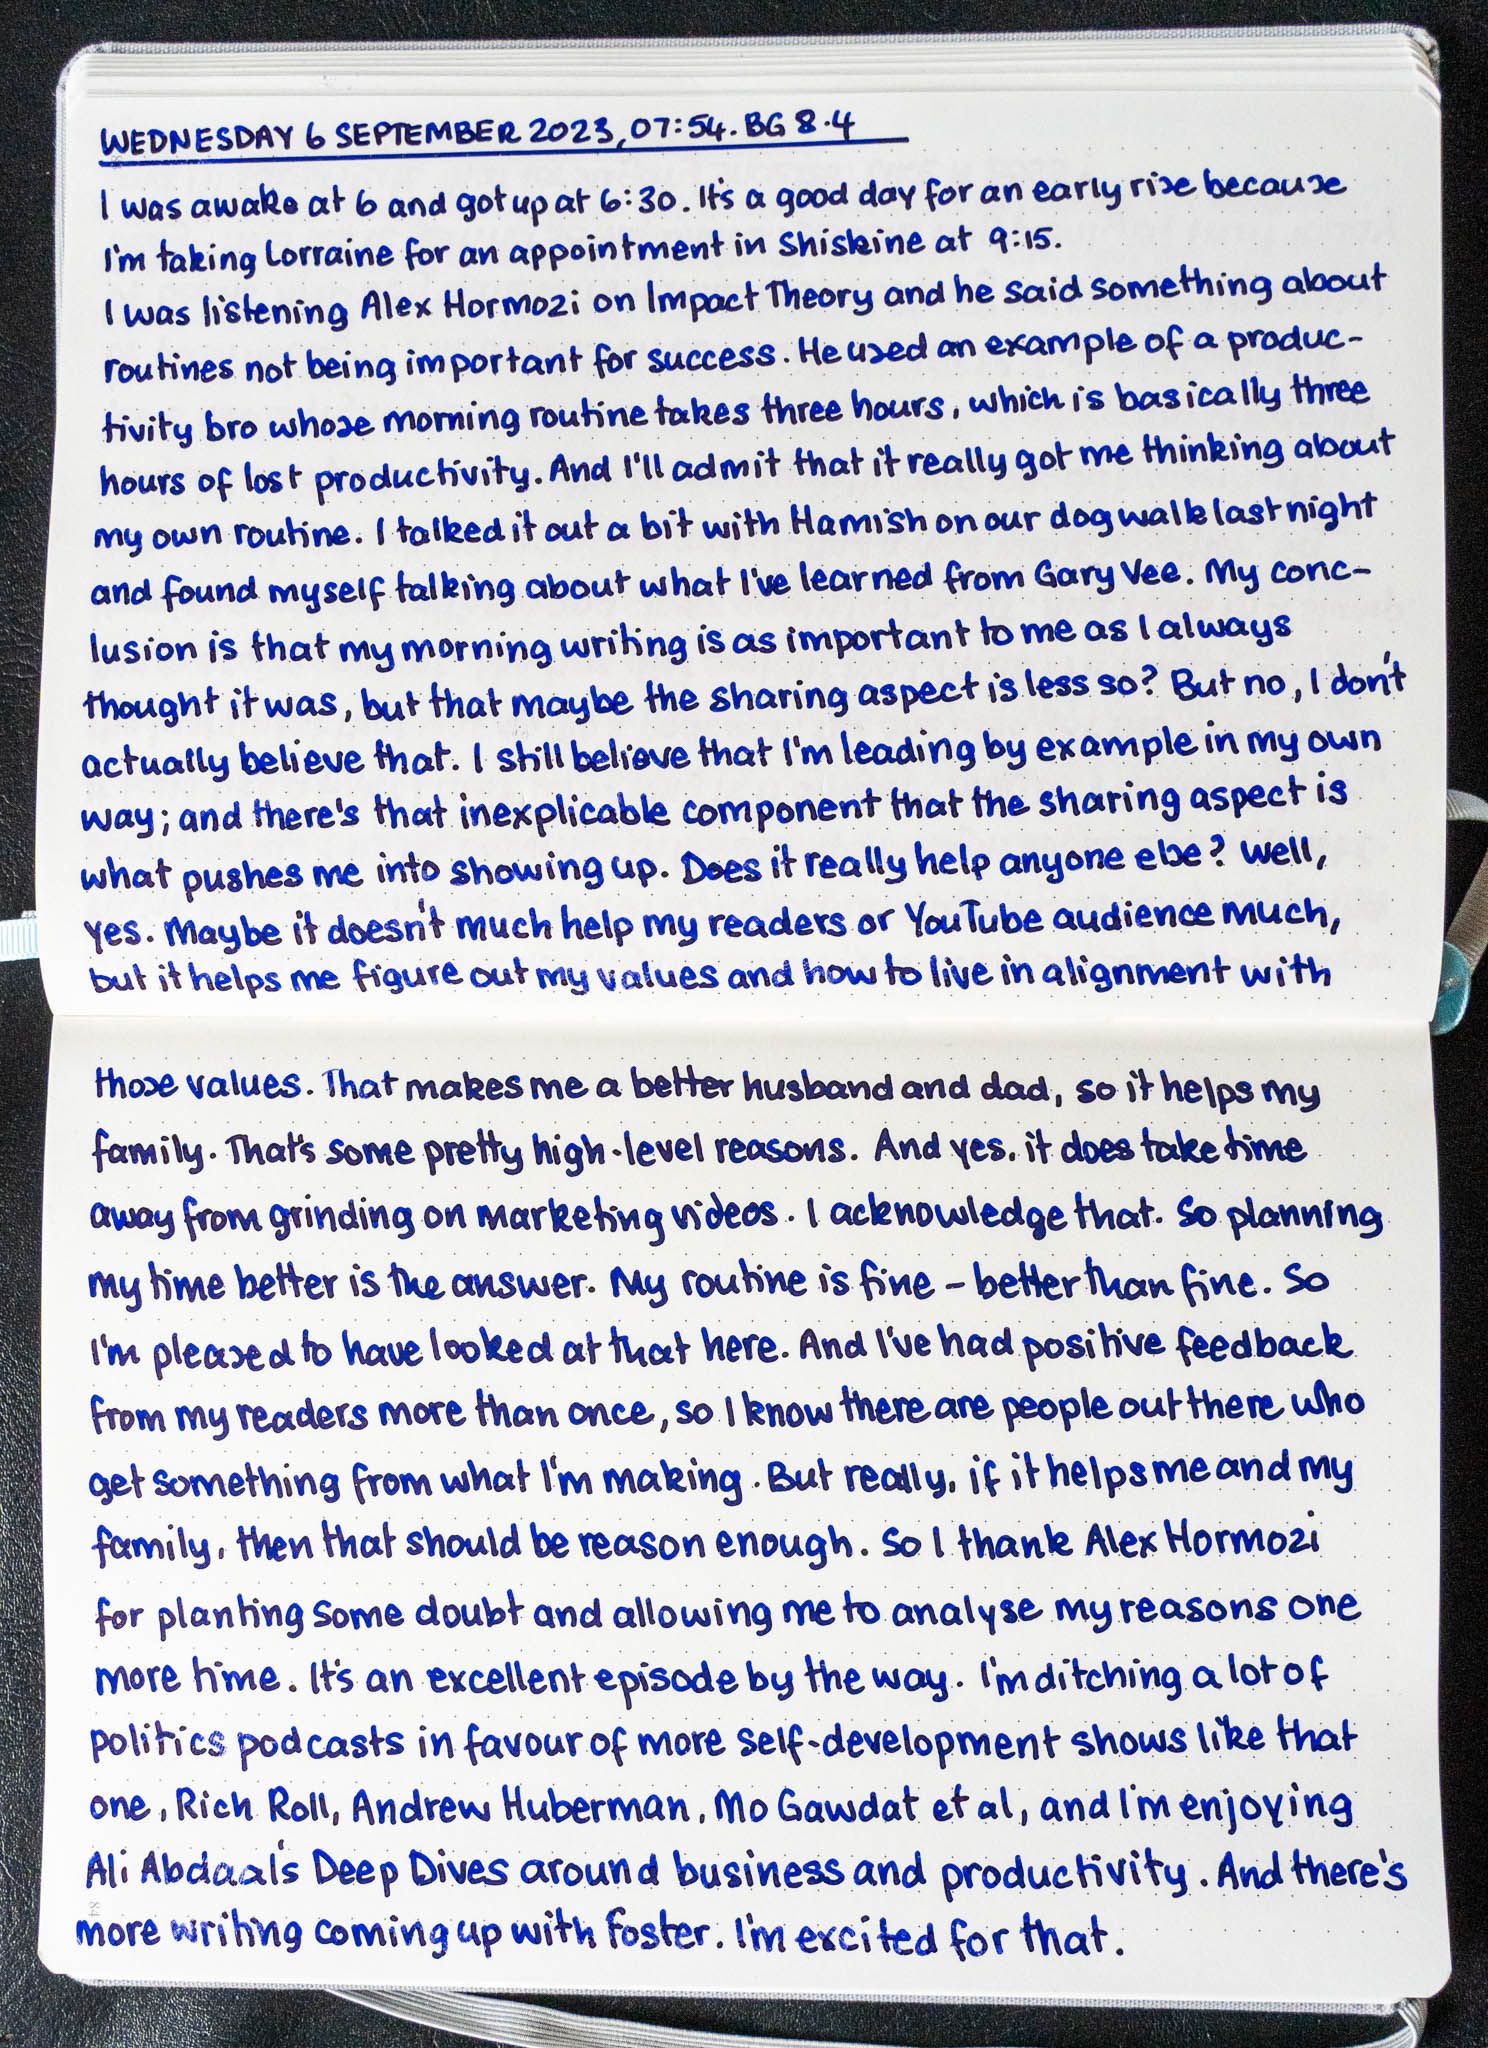 WEDNESDAY 6 SEPTEMBER 2023, 07:54. BG 8.4
I was awake at 6 and got up at 6:30. It's a good day for an early rise because
I'm taking Lorraine for an appointment in Shiskine at 9:15.
I was listening Alex Hormozi on Impact Theory and he said something about
routines not being important for success. He used an example of a produc-
tivity bro whose morning routine takes three hours, which is basically three
hours of lost productivity. And I'll admit that it really got me thinking about
my own routine. I talked it out a bit with Hamish on our dog walk last night
and found myself talking about what I've learned from Gary Vee. My conc-
lusion is that my morning writing is as important to me as I always
thought it was, but that maybe the sharing aspect is less so? But no, I don't
actually believe that. I still believe that I'm leading by example in my own
way; and there's that inexplicable component that the sharing aspect is
what pushes me into showing up. Does it really help anyone else? Well,
yes. Maybe it doesn't much help my readers or YouTube audience much,
but it helps me figure out my values and how to live in alignment with
those values. That makes me a better husband and dad, so it helps my
family. That's some pretty high-level reasons. And yes, it does take time
away from grinding on marketing videos. I acknowledge that. So planning
my time better is the answer. My routine is fine – better than fine. So
I'm pleased to have looked at that here. And I've had positive feedback
from my readers more than once, so I know there are people out there who
get something from what I'm making. But really, if it helps me and my
family, then that should be reason enough. So I thank Alex Hormozi
for planting some doubt and allowing me to analyse my reasons one
more time. It's an excellent episode by the way. I'm ditching a lot of
politics podcasts in favour of more self-development shows like that
one, Rich Roll, Andrew Huberman, Mo Gawdat et al, and I'm enjoying
Ali Abdaal's Deep Dives around business and productivity. And there's
84
more writing coming up with Foster. I'm excited for that.